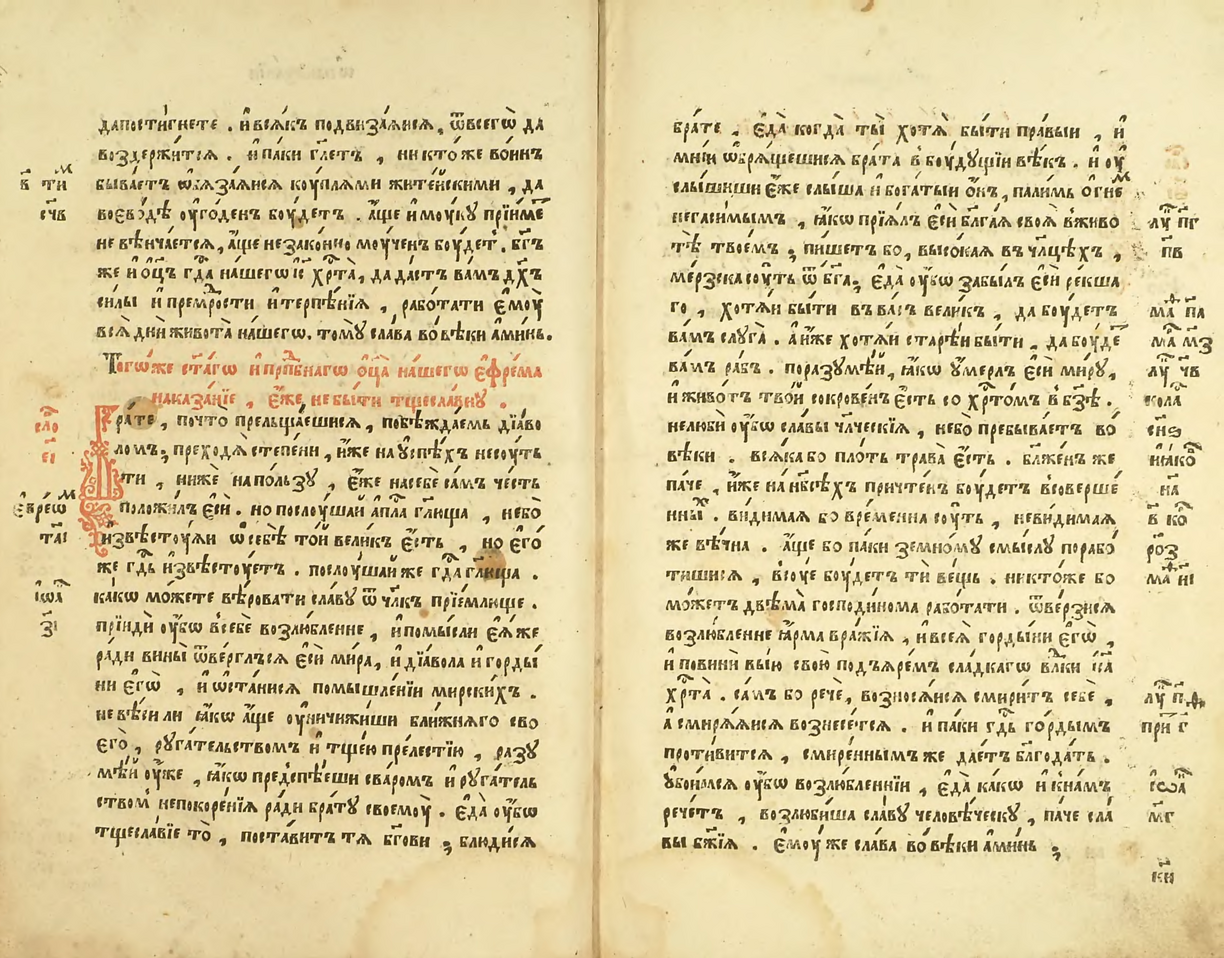 дапости́гнете . и҆ всѧ́къ подвиза́ѧисѧ , ѿ всегѡ̀ да
воздержи́тсѧ . и҆ па́ки гл҃етъ , никто́же во́инъ
быва́етъ ѡ҆бѧза́ѧисѧ коу́плѧми жите́искими , да
воево́дѣ оу҆го́денъ боу́детъ . а҆́ще и҆ моу́кꙋ прїи́ме
не вѣнча́етсѧ , а҆́ще не зако́нно моу́ченъ боу́детъ . бг҃ъ
же и҆ ѻ҆ц҃ъ гд҇а на́шегѡ і҆с хр҇та̀ , да да́стъ ва́мъ дх҃ъ
си́лы и҆ премр҇ости и҆ терпѣ́нїѧ , рабо́тати є҆моу̀
всѧ̀ дни̑ живота̀ на́шегѡ . томꙋ̀ сла́ва во вѣ́ки а҆ми́нь .
Тогѡ́же ст҃а́гѡ и҆ прпⷣбнагѡ ѻ҆ц҃а̀ на́шегѡ є҆фре́ма
наказа́нїе , є҆́же не бы́ти тщесла́внꙋ .
Бра́те , почто̀ прельща́ешисѧ , побѣжда́емь дїа́во
ломъ ; преходѧ̀ степе́ни , и҆̀же на оу҆спѣ́хъ несоу́ть
ти , нижѐ на по́льзꙋ , є҆́же на себѐ са́мъ че́сть
положи́лъ є҆сѝ . но послоу́шаи а҆пⷭ҇ла гл҃юща , не бо̀
и҆звѣстоу́ѧи ѡ҆ себѣ̀ то́и вели́къ є҆́сть , но є҆го́
же гд҇ь и҆звѣстоу́етъ . послоу́шаи же гд҇а гл҃юща .
ка́кѡ мо́жете вѣ́ровати сла́вꙋ ѿ чл҃къ прїе́млюще .
прїидѝ оу҆́бѡ в себѐ возлю́бленне , и҆ помы́сли є҆ѧ́ же
ра́ди вины̀ ѿве́рглъсѧ є҆сѝ ми́ра , и҆ дїа́вола и҆ горды́
ни є҆гѡ̀ , и҆ ѡ҆ста́нисѧ помышле́нїи мирски́хъ .
не вѣ́си ли ꙗ҆́кѡ а҆́ще оу҆ничижи́ши бли́жнѧго сво
его̀ , рꙋга́тельствомъ и҆ тще́ю пре́лестїю , разꙋ
мѣ́и оу҆́же , ꙗ҆́кѡ предспѣ́еши сва́ромъ и҆ рꙋга́тель
ством̾ непокоре́нїѧ ра́ди бра́тꙋ своемоу̀ . є҆да̀ оу҆́бѡ
тщесла́вїе то̀ , поста́витъ тѧ бг҃ови ; блюди́сѧ
в҃ ти
сч҃в
сло
є҃і
є҆вре́ѡ
та҃і
і҆ѡа
з҃і
бра́те , є҆да̀ когда̀ ты̀ хотѧ̀ бы́ти пра́выи , и҆
мни́и ѡ҆брѧ́щешисѧ бра́та в боу́дꙋщїи вѣ́къ . и҆ оу҆
слы́шиши є҆́же слы́ша и҆ бога́тыи ѻ҆́нъ , пали́мь о҆гне
негаси́мымъ , ꙗ҆́кѡ прїѧ́лъ є҆сѝ бл҃га́ѧ своѧ̀ в живо
тѣ̀ твое́мъ ; пи́шет бо , высо́каѧ въ чл҃цѣхъ ,
ме́рзска соу́ть ѿ бг҃а , є҆да̀ оу҆́бѡ забы́лъ є҆сѝ ре́кша
го , хотѧ́и бы́ти въ ва́съ вели́къ , да боу́детъ
ва́мъ слꙋга̀ . а҆ и҆́же хотѧ́и старѣ́и бы́ти , да боу́де
ва́мъ ра́бъ . поразꙋмѣ́и , ꙗ҆́кѡ ᲂу҆́мерлъ є҆сѝ ми́рꙋ ,
и҆ живо́тъ тво́и сокрове́нъ є҆́сть со хр҇то́мъ в бз҃ѣ .
не любѝ оу҆́бѡ сла́вы чл҃ческїѧ , не бо пребыва́етъ во
вѣ́ки . всѧ́ка бо пло́ть трава̀ є҆́сть . бл҃же́нъ же
па́че , и҆́же на нб҃сѣ́хъ причте́нъ боу́детъ в соверше́
нны́х . ви́димаѧ бо вре́менна соу́ть , неви́димаѧ
же вѣ́чна . а҆́ще бо па́ки земно́мꙋ смы́слꙋ порабо
ти́шисѧ , всоу́е боу́детъ тѝ ве́щь . никто́же бо
мо́жетъ двѣма̀ господи́нома рабо́тати . ѿве́рзисѧ
возлю́бленне ꙗ҆рма̀ вра́жїѧ , и҆ всеѧ̀ горды́ни є҆гѡ̀ ,
и҆ повинѝ вы́ю свою̀ подъѧре́мъ сла́дкагѡ влⷣки і҆са
хр҇та̀ . са́мъ бо речѐ , возносѧ́исѧ смири́тъ себѐ ,
а҆ смирѧ́ѧисѧ вознесе́тсѧ . и҆ па́ки гд҇ь го́рдымъ
проти́витсѧ , смире́нным же дае́тъ бл҃года́ть .
ᲂу҆бои́мсѧ оу҆́бѡ возлю́бленнїи , є҆да̀ ка́кѡ и҆ к на́мъ
рече́тъ , возлюби́ша сла́вꙋ человѣ́ческꙋ , па́че сла́
вы бж҃їѧ . є҆моу́ же сла́ва во вѣ́ки а҆ми́нь ;
лꙋ п҃г
п҃в
ма п҃а
ма м҃з
лꙋ ч҃в
кола
сн҃ѳ
и҆а́ко
на
в҃ ко
роз
ма н҃і
лꙋ п҃ф
при г҃
і҆соа
м҃г
к҃и